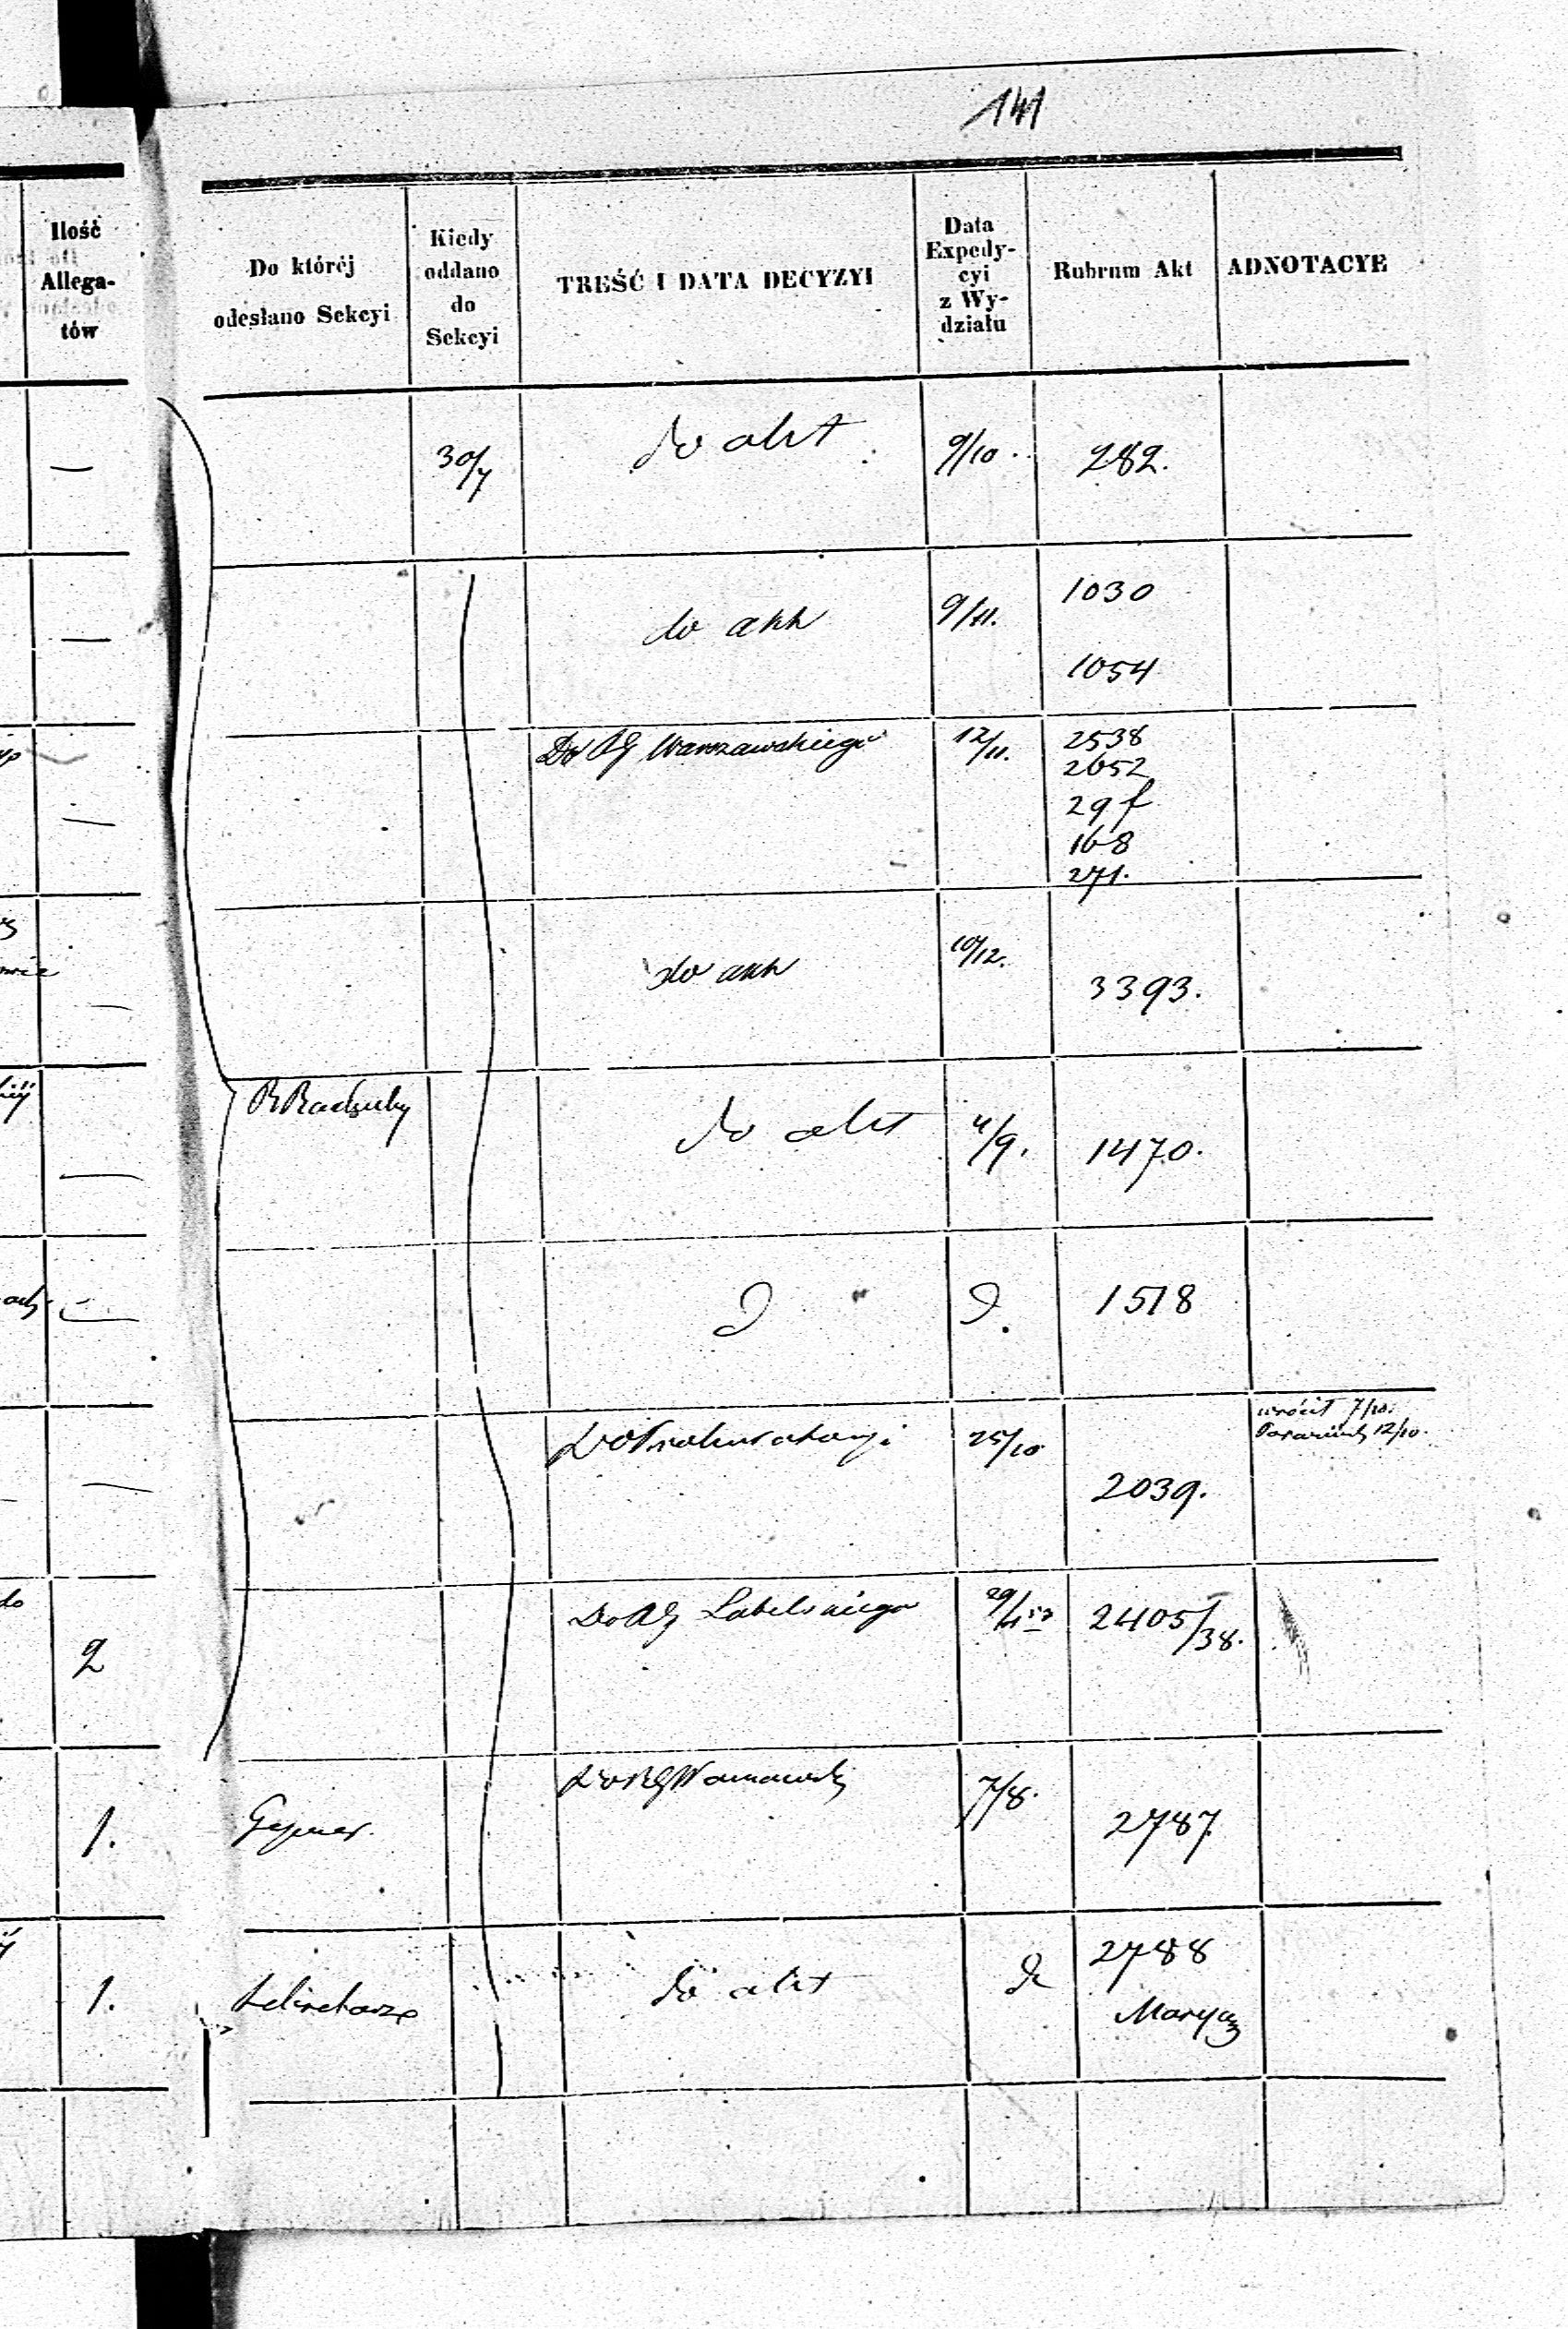 141
Ilość
Allega-
tów
Do któréj
odesłano Sekcyi
Kiedy
oddano
do
Sekcyi
TREŚĆ I DATA DECYZYI
Data
Expedy-
cyi
z Wy-
działu
Rubrum Akt
ADNOTACYE
—
30/7
do akt
9/10.
282.
—
do akt
9/11.
1030
1054
—
Do RG Warszawskiego
12/11.
2538
2652
29 f
168
271.
—
do akt
10/12.
3393.
—
do akt
4/9.
1470.
—
1518
—
Do Prokuratoryi
25/10
2039.
wrócił 7/10.
12/10.
2
Do RG Lubelskiego
2405/38.
1.
Do RG Warszawsk
7/8.
2787
1.
Sekretarze
do akt
2788